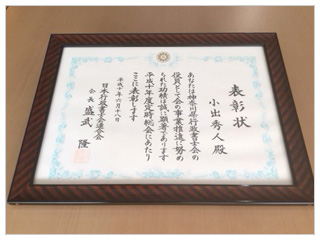 表彰状
小出秀人殿
あなたは神奈川県行政書士会の
役員として会の事業推進に努め
られた功績は誠に顕著であります
平成十年度定時総会にあたり
ここに表彰します
平成十年六月十八日
日本行政書士会連合会
会長 盛武 隆